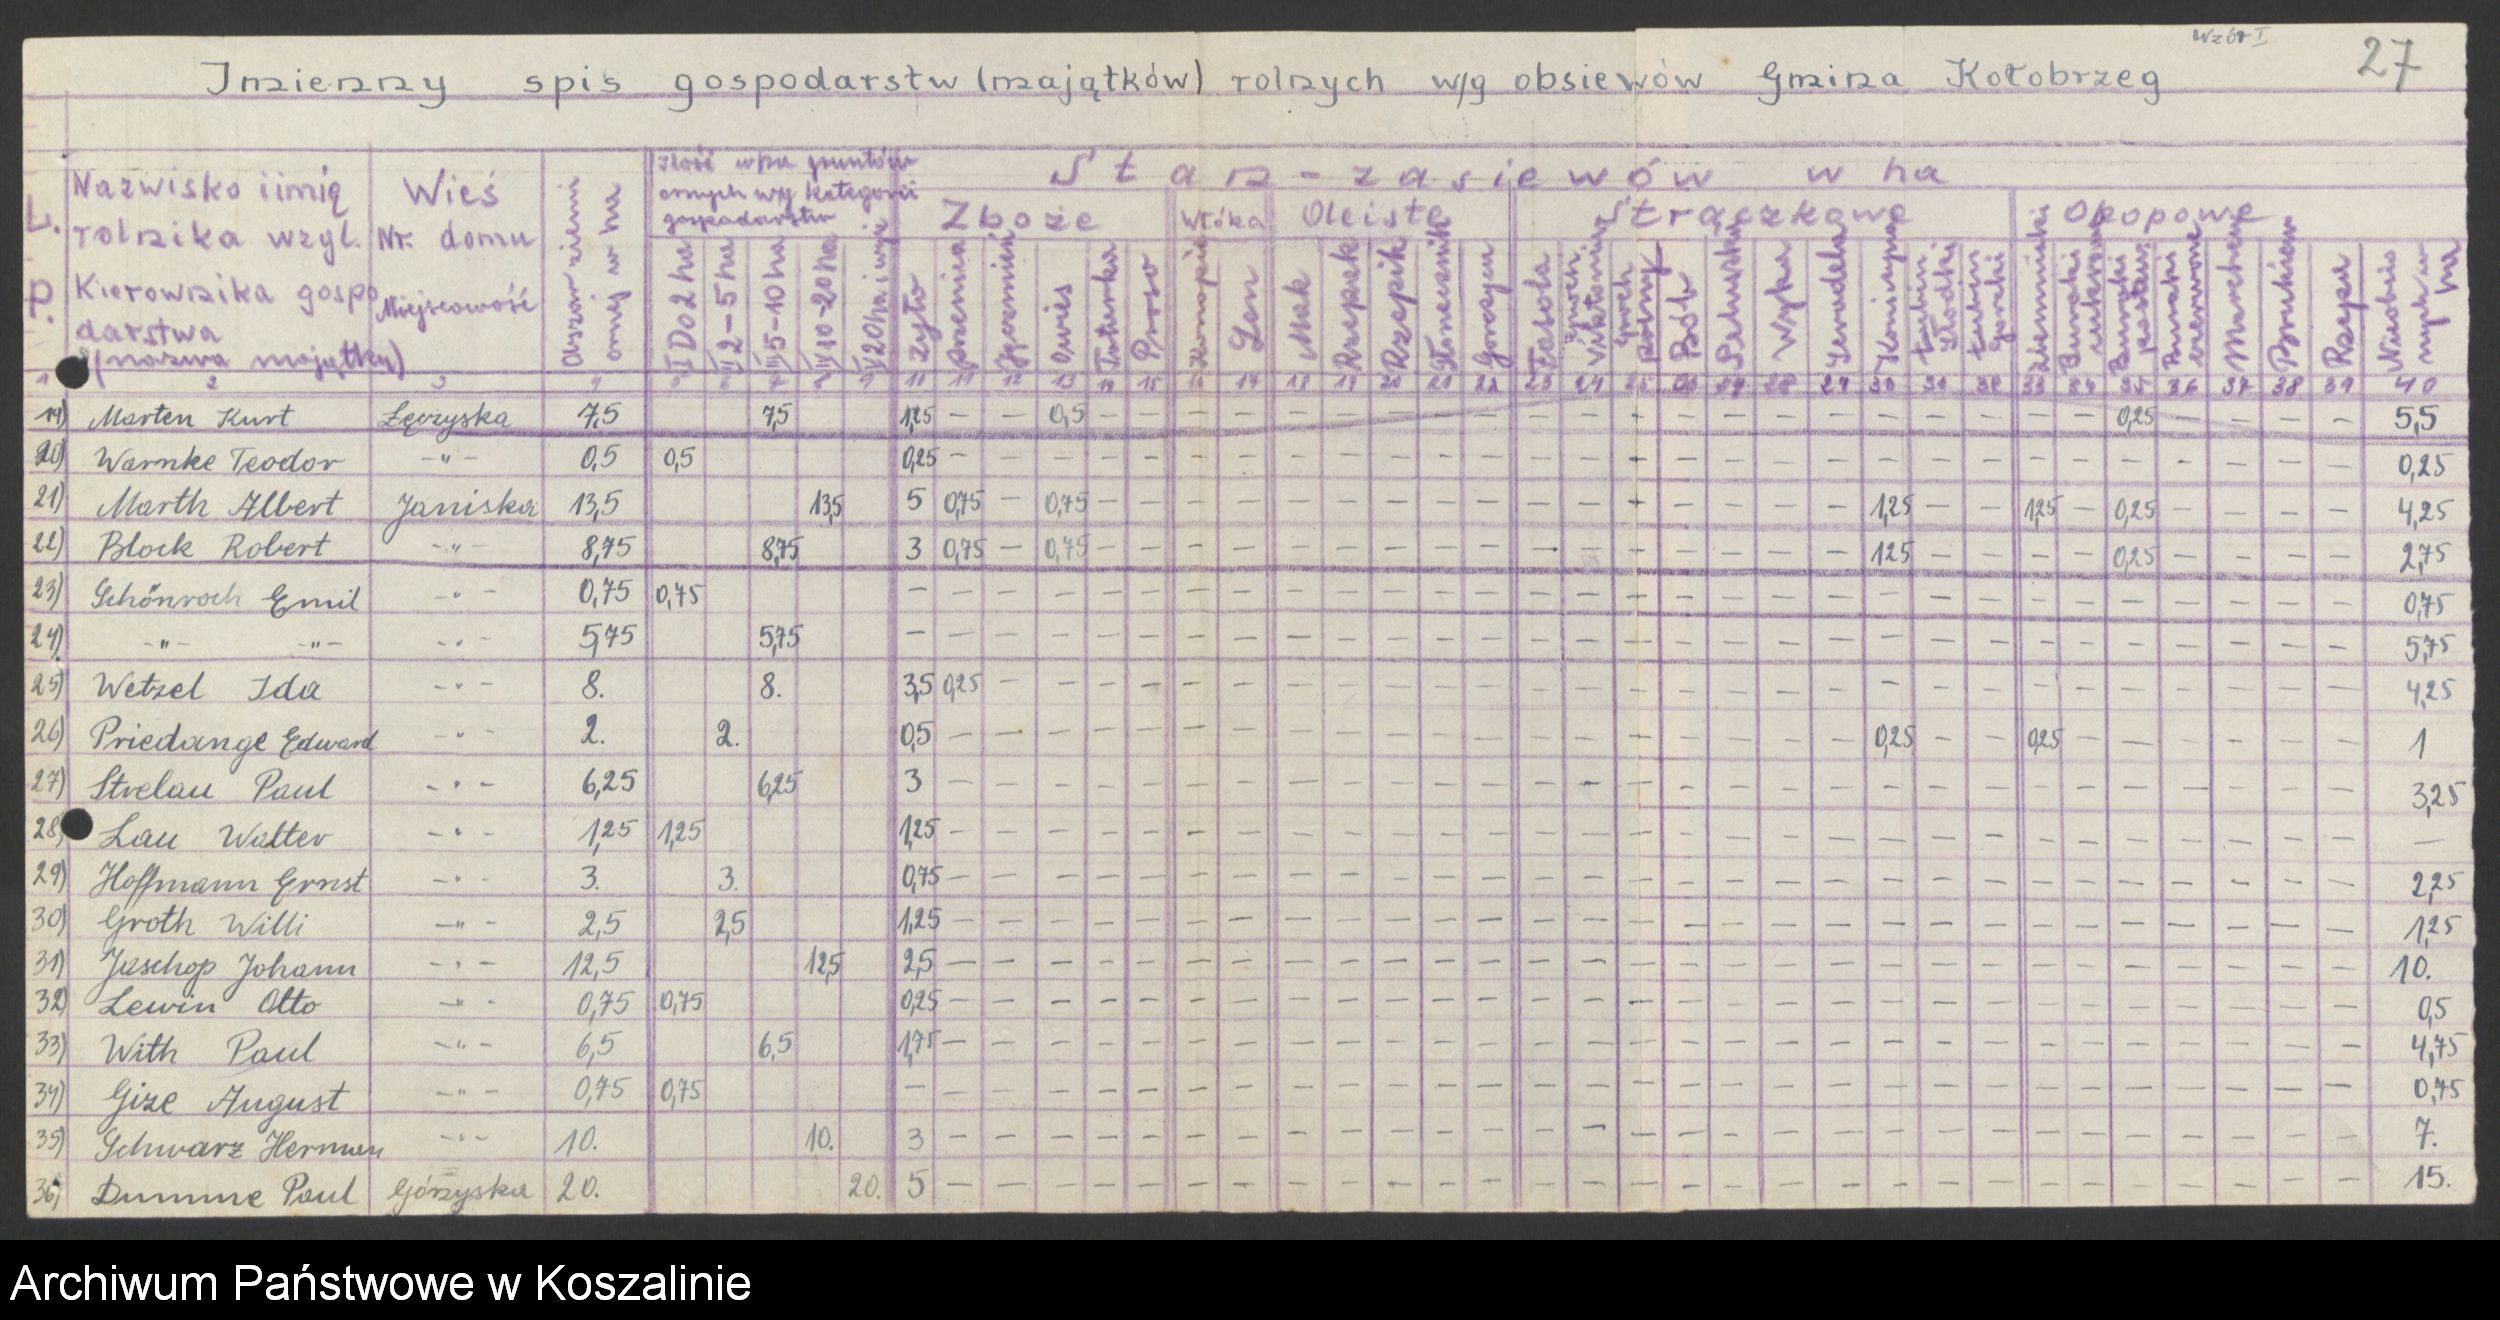 Wzór I
27
Imienny spis gospodarstw (majątków) rolnych w/g obsiewów Gmina Kołobrzeg
L. P.
Nazwisko i imię rolnika wzgl. Kierownika gospodarstwa (nazwa majątku)
Wieś Nr. domu Miejscowość
Obszar ziemi ornej w ha
Ilość w ha gruntów ornych w/g kategorii gospodarstw
I Do 2 ha
II 2-5 ha
III 5-10 ha
IV 10-20 ha
V 20 ha i wyż
Stan - zasiewów w ha
Zboże
Żyto
Pszenica
Jęczmień
Owies
Tatarka
Proso
Włóka
Konopie
Len
Oleiste
Mak
Rzepak
Rzepik
Słonecznik
Gorczyca
Strączkowe
Fasola
Groch Wiktoria
Groch polny
Bób
Peluszka
Wyka
Seradela
Koniczyna
Łubin słodki
Łubin gorzki
Okopowe
Ziemniaki
Buraki cukrowe
Buraki pastew.
Buraki czerwone
Marchew
Brukiew
Rzepa
Nieobsianych w ha
1 2 3 4 5 6 7 8 9 10 11 12 13 14 15 16 17 18 19 20 21 22 23 24 25 26 27 28 29 30 31 32 33 34 35 36 37 38 39 40
19) Marten Kurt Łęczyska 7,5 7,5 1,25 - - 0,5 - - - - - - - - - - - - - - - - - - - - - 0,25 - - - - 5,5
20) Warnke Teodor -"- 0,5 0,5 0,25 - - - - - - - - - - - - - - - - - - - - - - - - - - - - - 0,25
21) Marth Albert Janiska 13,5 13,5 5 0,75 - 0,75 - - - - - - - - - - - - - - - - 1,25 - - 1,25 - 0,25 - - - - 4,25
22) Block Robert -"- 8,75 8,75 3 0,75 - 0,75 - - - - - - - - - - - - - - - - 1,25 - - - - 0,25 - - - - 2,75
23) Schönroch Emil -"- 0,75 0,75 - - - - - - - - - - - - - - - - - - - - - - - - - - - - - - 0,75
24) -"- -"- -"- 5,75 5,75 - - - - - - - - - - - - - - - - - - - - - - - - - - - - - - 5,75
25) Wetzel Ida -"- 8. 8. 3,5 0,25 - - - - - - - - - - - - - - - - - - - - - - - - - - - - 4,25
26) Priedange Edward -"- 2. 2. 0,5 - - - - - - - - - - - - - - - - - - - 0,25 - - 0,25 - - - - - - 1
27) Strelau Paul -"- 6,25 6,25 3 - - - - - - - - - - - - - - - - - - - - - - - - - - - - - 3,25
28) Lau Walter -"- 1,25 1,25 1,25 - - - - - - - - - - - - - - - - - - - - - - - - - - - - - -
29) Hoffmann Ernst -"- 3. 3. 0,75 - - - - - - - - - - - - - - - - - - - - - - - - - - - - - 2,25
30) Groth Willi -"- 2,5 2,5 1,25 - - - - - - - - - - - - - - - - - - - - - - - - - - - - - 1,25
31) Jaschop Johann -"- 12,5 12,5 2,5 - - - - - - - - - - - - - - - - - - - - - - - - - - - - - 10.
32) Lewin Otto -"- 0,75 0,75 0,25 - - - - - - - - - - - - - - - - - - - - - - - - - - - - - 0,5
33) With Paul -"- 6,5 6,5 1,75 - - - - - - - - - - - - - - - - - - - - - - - - - - - - - 4,75
34) Gize August -"- 0,75 0,75 - - - - - - - - - - - - - - - - - - - - - - - - - - - - - - 0,75
35) Schwarz Herman -"- 10. 10. 3 - - - - - - - - - - - - - - - - - - - - - - - - - - - - - 7.
36) Dumme Paul Górzyska 20. 20. 5 - - - - - - - - - - - - - - - - - - - - - - - - - - - - - 15.
Archiwum Państwowe w Koszalinie